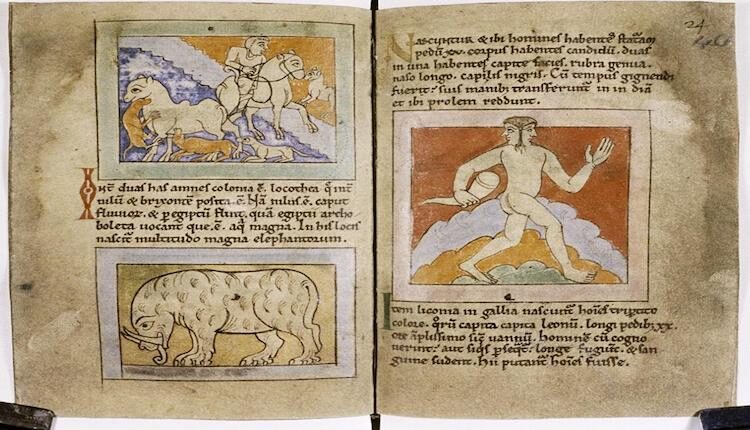 Iuxta duas has amnes colonia ē. locothea q̄ int̄
nilū & brixontē posita. ē. Nā nilus. ē. caput
fluuior. & p egiptū fluit. quā egiptii archo
boleta uocant que. ē. aq̄ magna. In his locis
nascit̄ multitudo magna elephantorum.
24
Nascuntur & ibi homines habentes staturā
pedū. xv. corpus habentes candidū. duas
in una habentes capite facies. rubra genua.
naso longo. capilis nigris. Cū tempus gignendi
fuerit: suis manib; transferunt in in diā
et ibi prolem reddunt.
Item liconia in gallia nascunt̄ hoēs tripertito
colore. qrū capita capita leonū. longi pedib; xx.
ore āplissimo sic̄ uannū. hominē cū cogno
uerint: aut siqs pseqt̄. longe fugiunt. & san
guine sudent. Hii putant̄ hoēs fuisse.